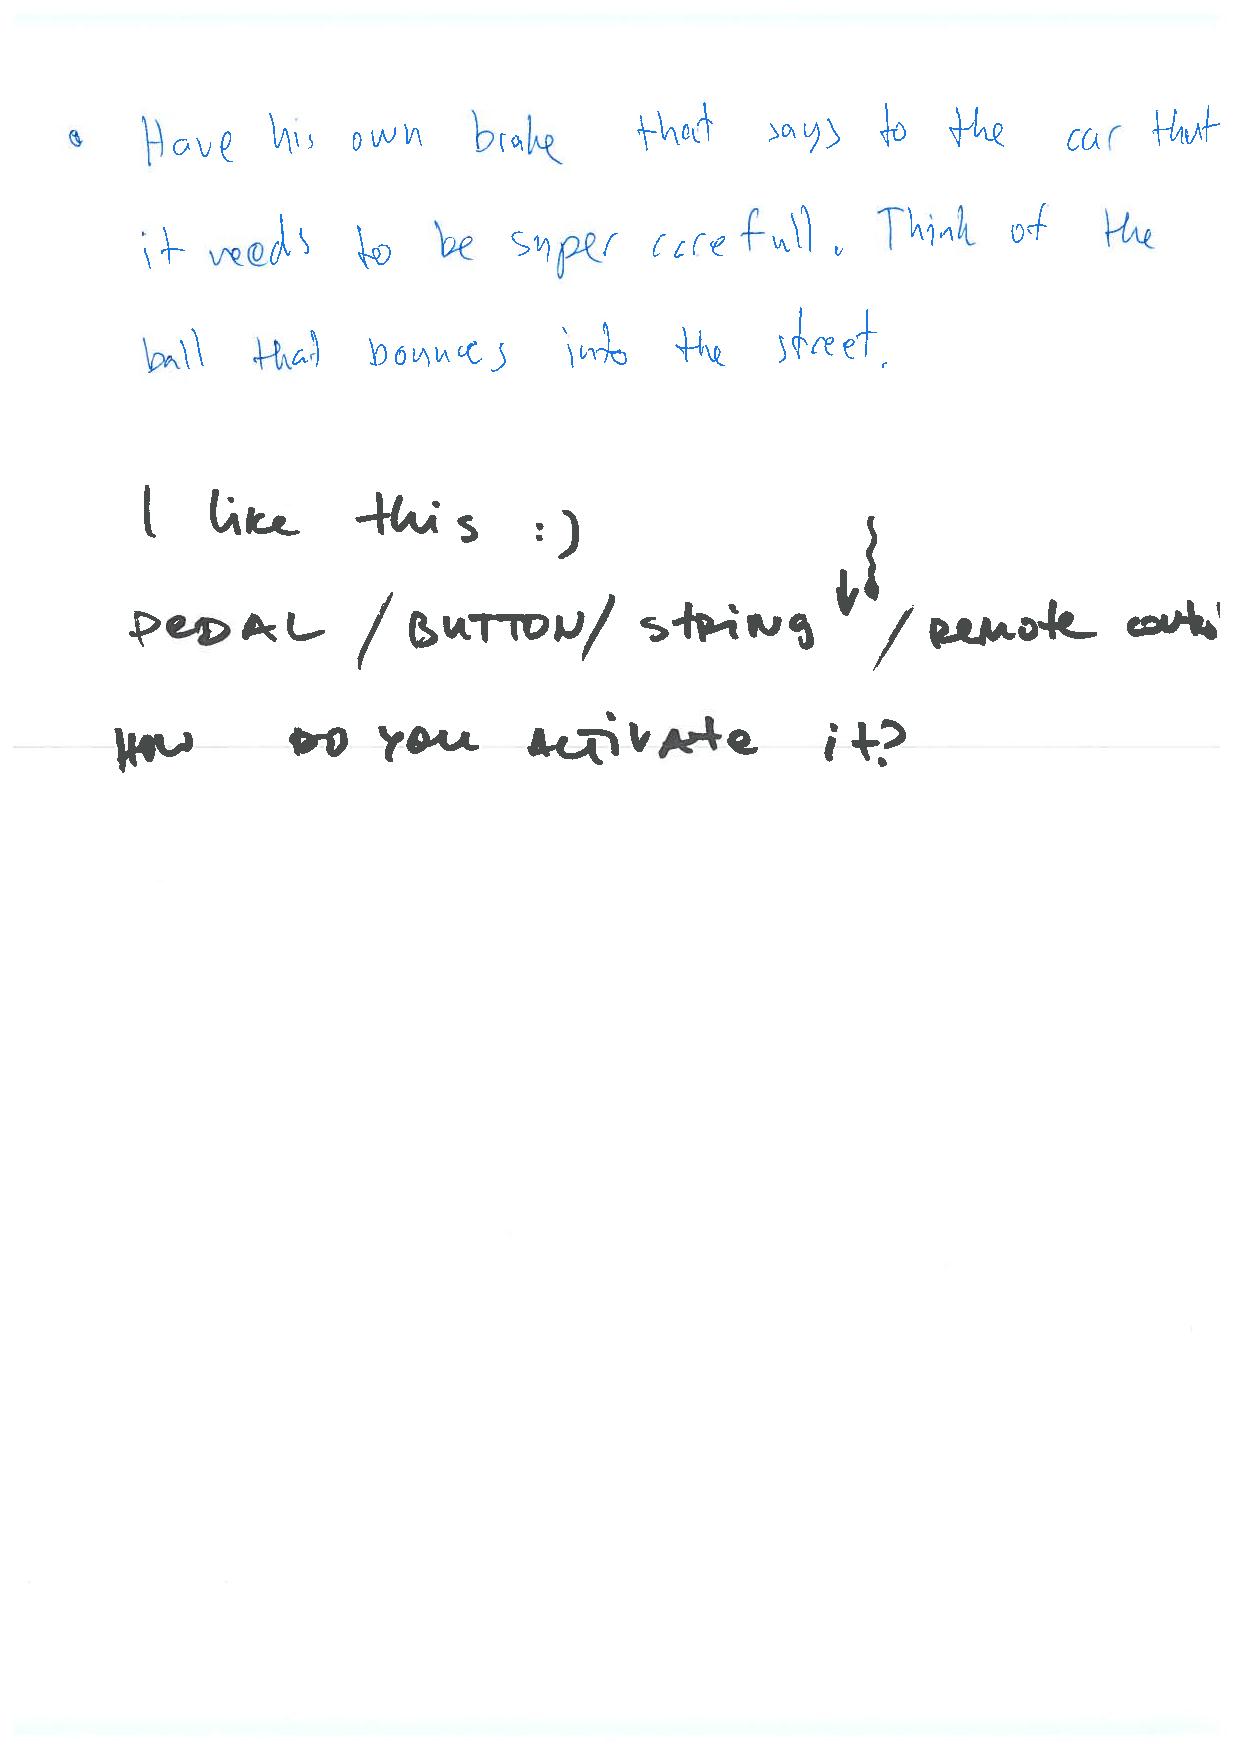 • Have his own brake that says to the car that
it needs to be super carefull. Think of the
ball that bounces into the street.
I like this :)
PEDAL / BUTTON / STRING / REMOTE
HOW DO YOU ACTIVATE it?